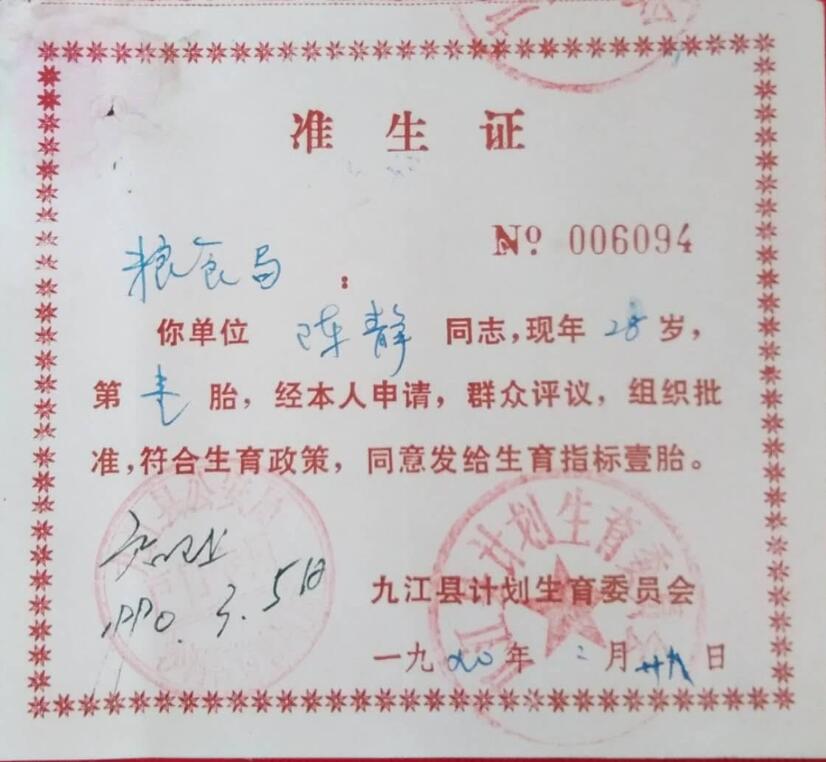 准生证
№ 006094
粮食局：
你单位 陈静 同志，现年 28 岁，
第 壹 胎，经本人申请，群众评议，组织批
准，符合生育政策，同意发给生育指标壹胎。
计划生育委员会
九江县计划生育委员会
1990. 3. 5日
一九 九〇 年 二 月 日